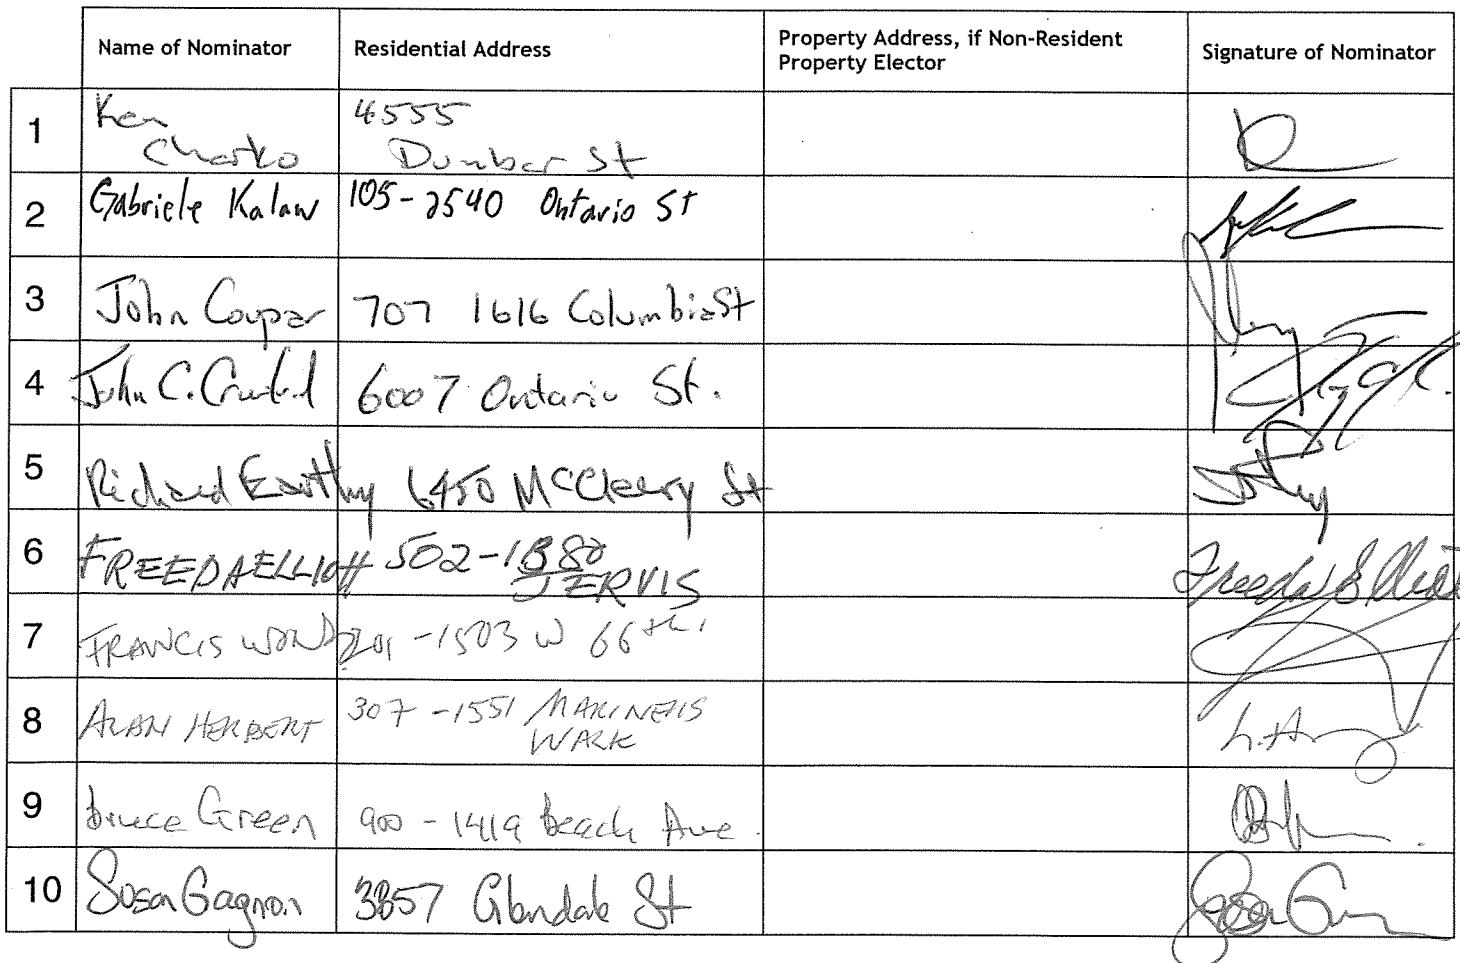 Name of Nominator Residential Address Property Address, if Non-Resident Property Elector Signature of Nominator
1 Ken Charko 4555 Dunbar St
2 Gabriele Kalaw 105-2540 Ontario St
3 John Coupar 707 1616 Columbia St
4 John C. 6007 Ontario St.
5 Richard Earthy 6450 McCleery St
6 FREEDA ELLIOTT 502-1880 JERVIS Freeda Elliott
7 FRANCIS WONG 201-1503 W 66th
8 ALAN HERBERT 307-1551 MARINERS WALK
9 bruce Green 900-1419 beach Ave.
10 Susan Gagnon 3857 Glendale St